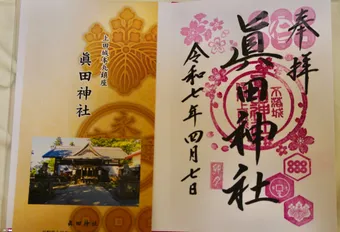 上田城本丸鎮座
眞田神社
眞田神社
奉拝
眞田神社
不落城
令和七年四月七日